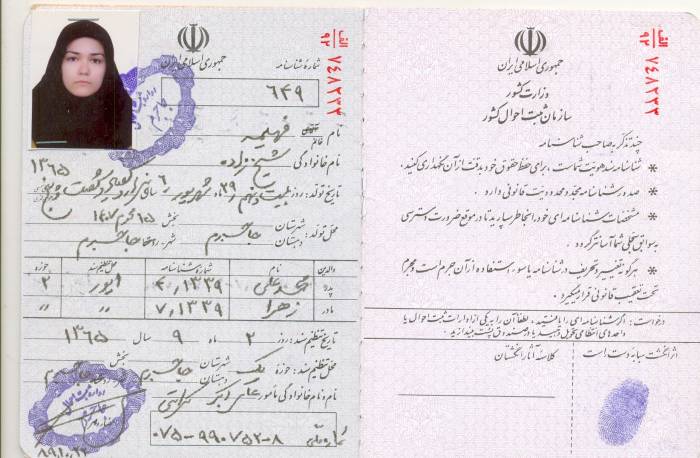 جمهوری اسلامی ایران
وزارت کشور
سازمان ثبت احوال کشور
چند تذکر به صاحب شناسنامه
* شناسنامه سند هویت شماست، برای حفظ حقوق خود در دقت از آن نگهداری کنید.
* صدور شناسنامه مجدد محدودیت قانونی دارد.
* مشخصات شناسنامه‌ای خود را بخاطر بسپارید تا در موقع ضرورت دسترسی
به سوابق سجلی شما آسانتر گردد.
* هرگونه تغییر و تحریف در شناسنامه یا سوء استفاده از آن جرم است و مجرم
تحت تعقیب قانونی قرار میگیرد.
درخواست: اگر شناسنامه‌ای را یافتید، لطفاً آن را به یکی از ادارات ثبت احوال یا
واحدهای انتظامی تحویل دهید یا در صندوق پست بیندازید.
اثر انگشت سبابه دست است
کلاسه آثار انگشتان
الف ۹۲ ۷۴۸۲۳۳
جمهوری اسلامی ایران
شماره شناسنامه
۶۴۹
نام فهیمه
خانم
نام خانوادگی شیخ زاده
تاریخ تولد: روز بیست و نهم (۲۹) ماه شهریور ۶ سال هزار و سیصد و شصت و پنج ۱۳۶۵
محل تولد: شهرستان جاجرم بخش
دهستان شهر، جاجرم
والدین نام شماره شناسنامه محل تنظیم سند حوزه
پدر محمدعلی ۴۰/۱۳۳۹ ایور ۲
مادر زهرا ۷/۱۳۳۹ 〃 〃
تاریخ تنظیم سند: روز ۲ ماه ۹ سال ۱۳۶۵
محل تنظیم سند: حوزه یک شهرستان جاجرم بخش
دهستان
نام و نام خانوادگی مامور: علی اکبر
شماره ملی ۰۷۵-۹۹۰۷۵۲-۸